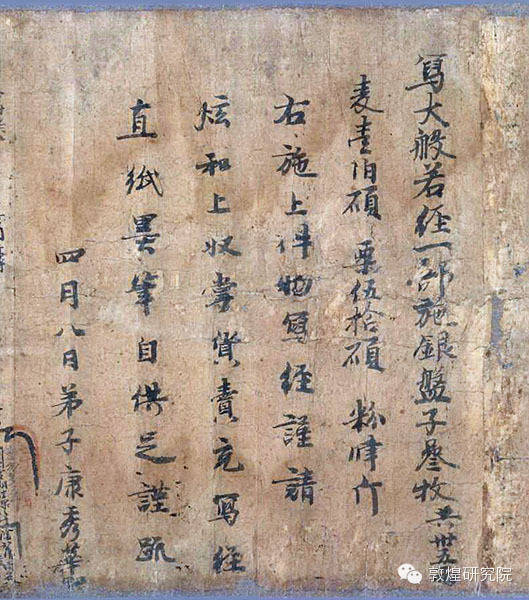 寫大般若經一部施銀盤子叁枚共卅五
麦壹伯碩 粟伍拾碩 粉肆斤
右施上件物寫經謹請
炫和上收掌貨賣充寫經
直紙墨筆自供足謹疏
四月八日弟子康秀華
敦煌研究院